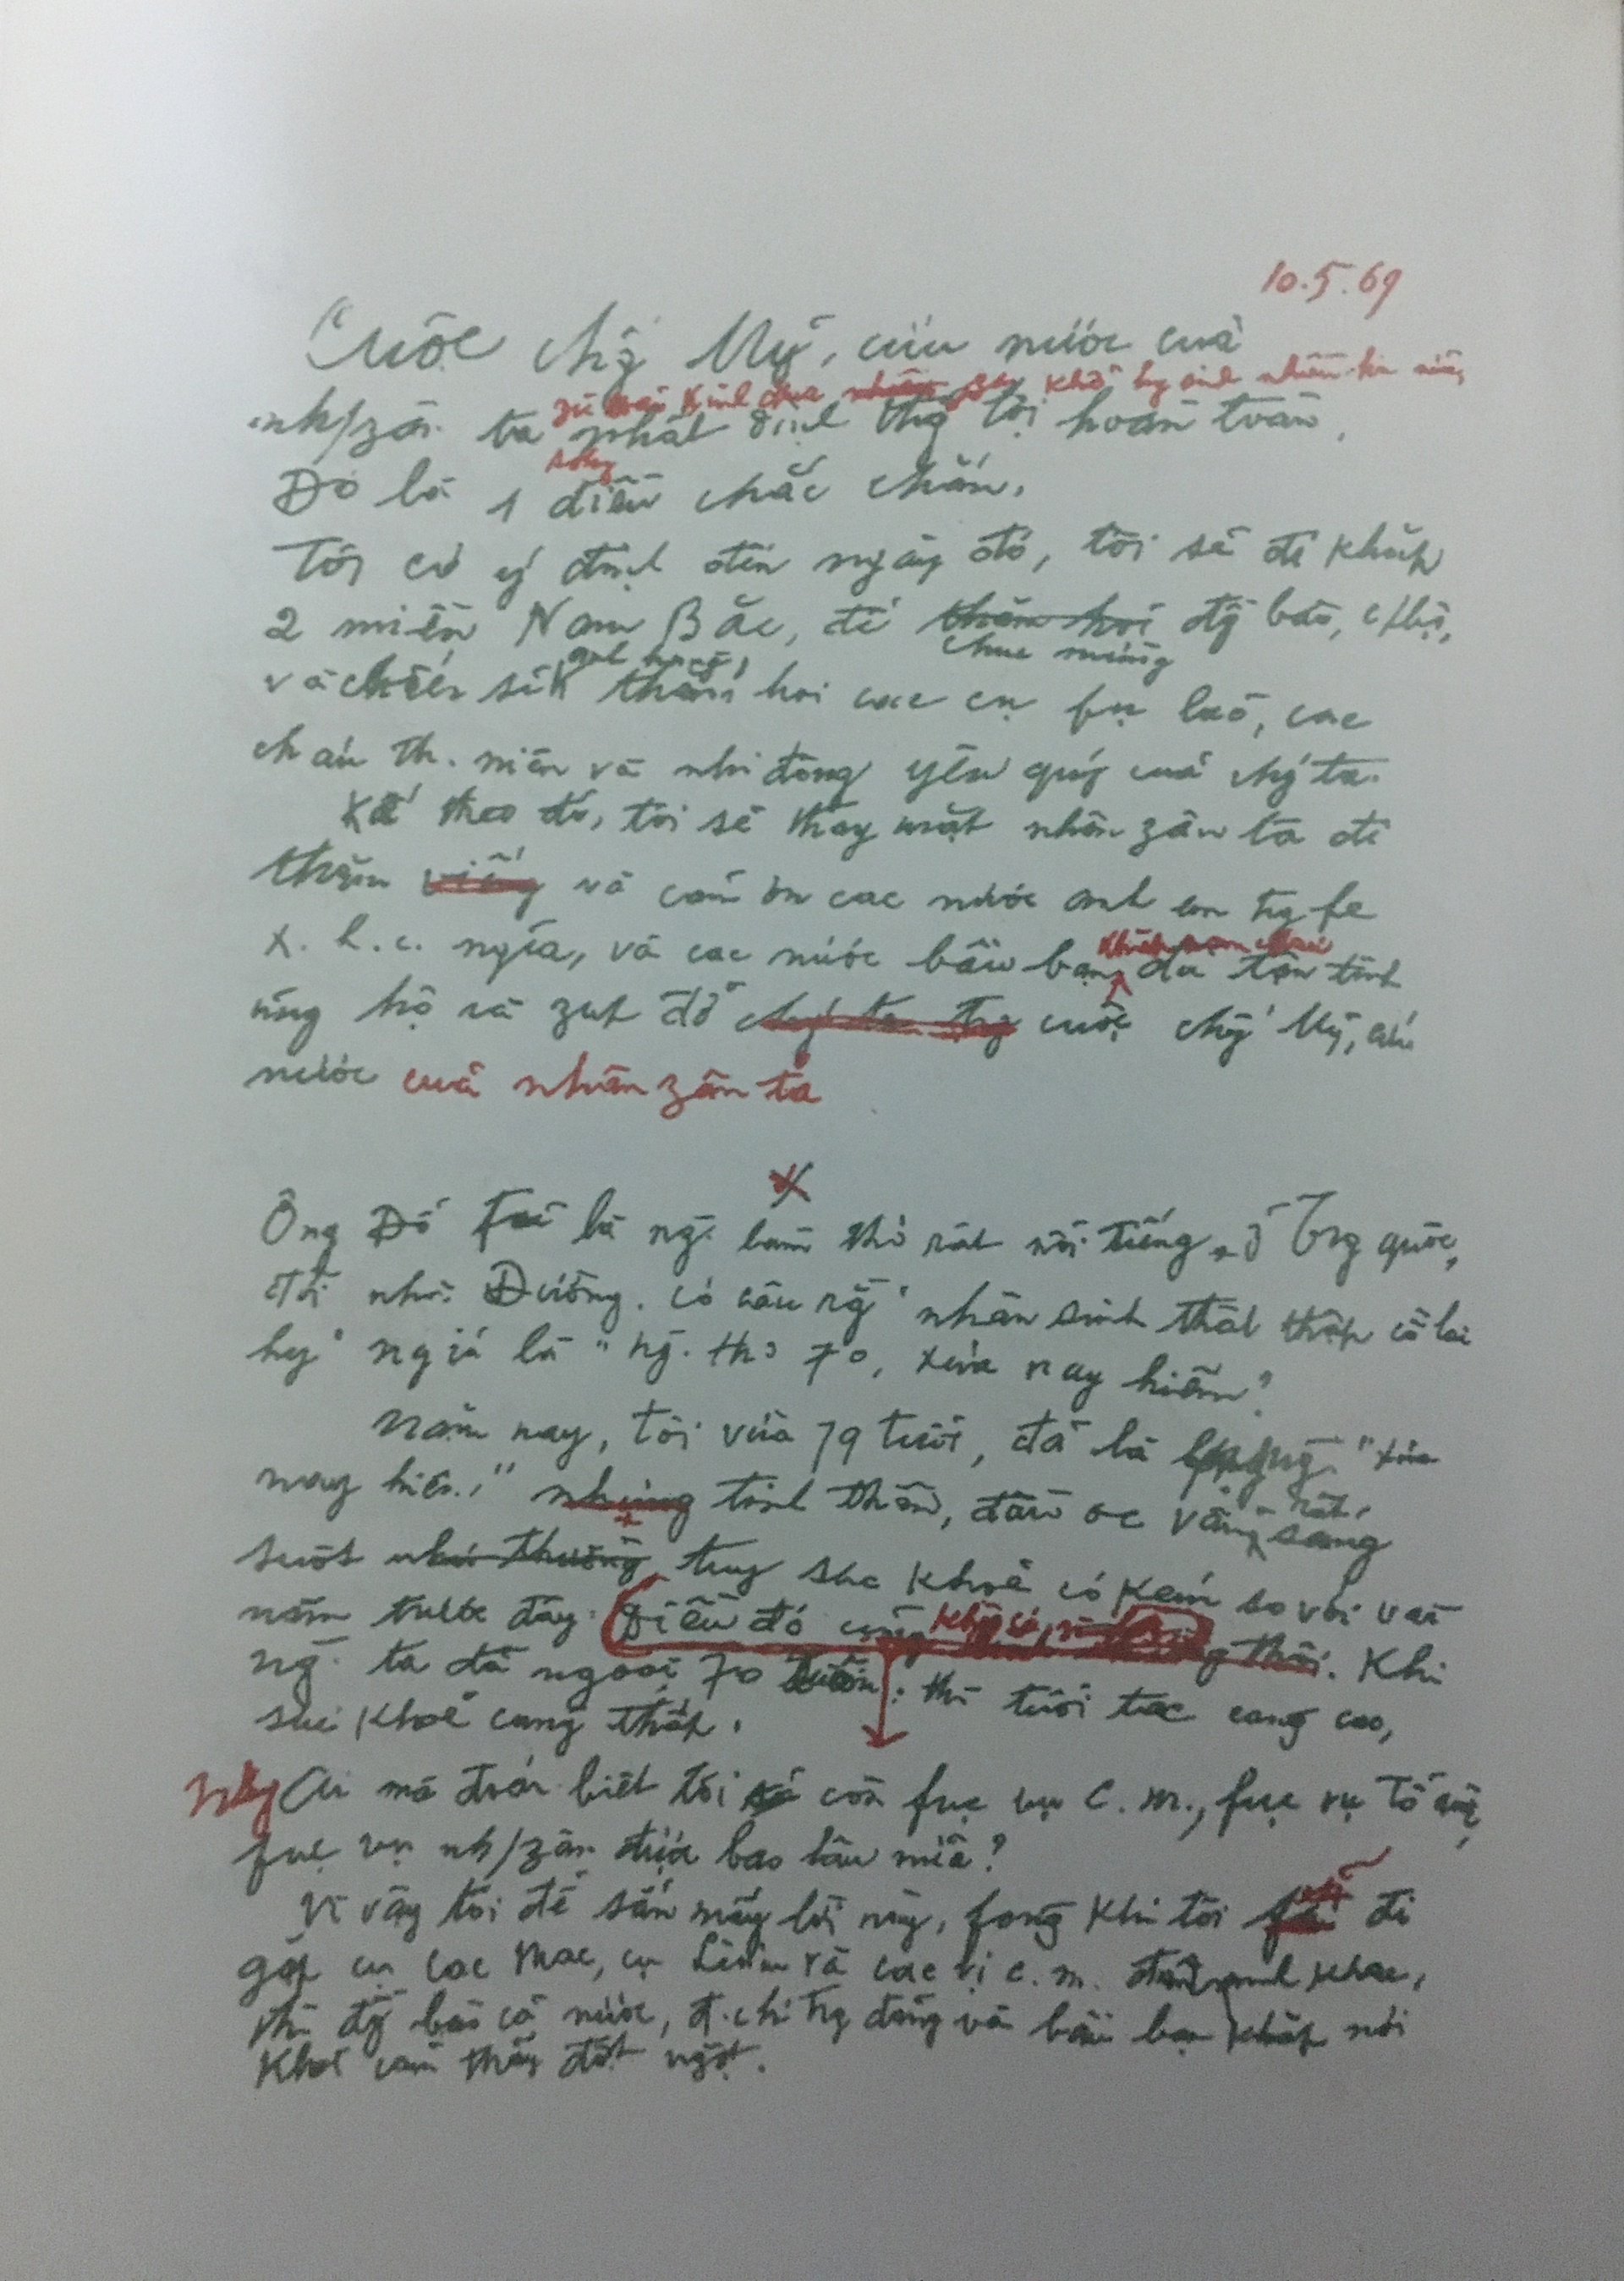 10.5.69
Cuộc chg Mỹ, cứu nước của
zù fải kinh qua gay khổ hy sinh nhiều hơn nữa,
nh/zân ta nhất định thg lợi hoàn toàn.
Đó là 1 điều chắc chắn.
Tôi có ý định đến ngày đó, tôi sẽ đi khăp
2 miền Nam Bắc, để thăm hỏi đg bào, c/bộ,
chúc mừng
anh hùng,
và chiến sĩ thăm hỏi các cụ fụ lão, các
cháu th. niên và nhi đồng yêu quý của chg ta.
Kế theo đó, tôi sẽ thay mặt nhân zân ta đi
thăm viếng và cảm ơn các nước anh em trg fe
x. h. c. ngĩa, và các nước bầu bạn khăp năm châu đã tận tình
ủng hộ và zup đỡ chg ta trg cuộc chg Mỹ, cứu
nước của nhân zân ta
Ông Đỗ Fủ là ng. làm thơ rất nổi tiếng, ở Trg quốc,
đời nhà Đường. Có câu rg "nhân sinh thất thập cổ lai
hy" ngĩa là "ng. thọ 70, xưa nay hiếm"
Năm nay, tôi vừa 79 tuổi, đã là "xưa
nay hiếm" nhưng tinh thần, đầu oc vẫn rất sang
suốt như thường, tuy sưc khoẻ có kém so với vài
năm trươc đây. Điều đó cũng không có gì lạ. Khi
ng. ta đã ngoài 70 xuân, thì tuổi tác càng cao,
sưc khoẻ càng thấp.
Nhưng Ai mà đoán biết tôi sẽ còn fục vụ c. m., fục vụ Tổ quốc,
fục vụ nh/zân được bao lâu nữa?
Vì vậy tôi để sẵn mấy lời này, fong khi tôi sẽ đi
gặp cụ Cac Mac, cụ Lênin và các vị c. m. đàn anh khác,
thì đg bào cả nước, đ. chí trg đảng và bầu bạn khăp nơi
khỏi cảm thấy đột ngột.